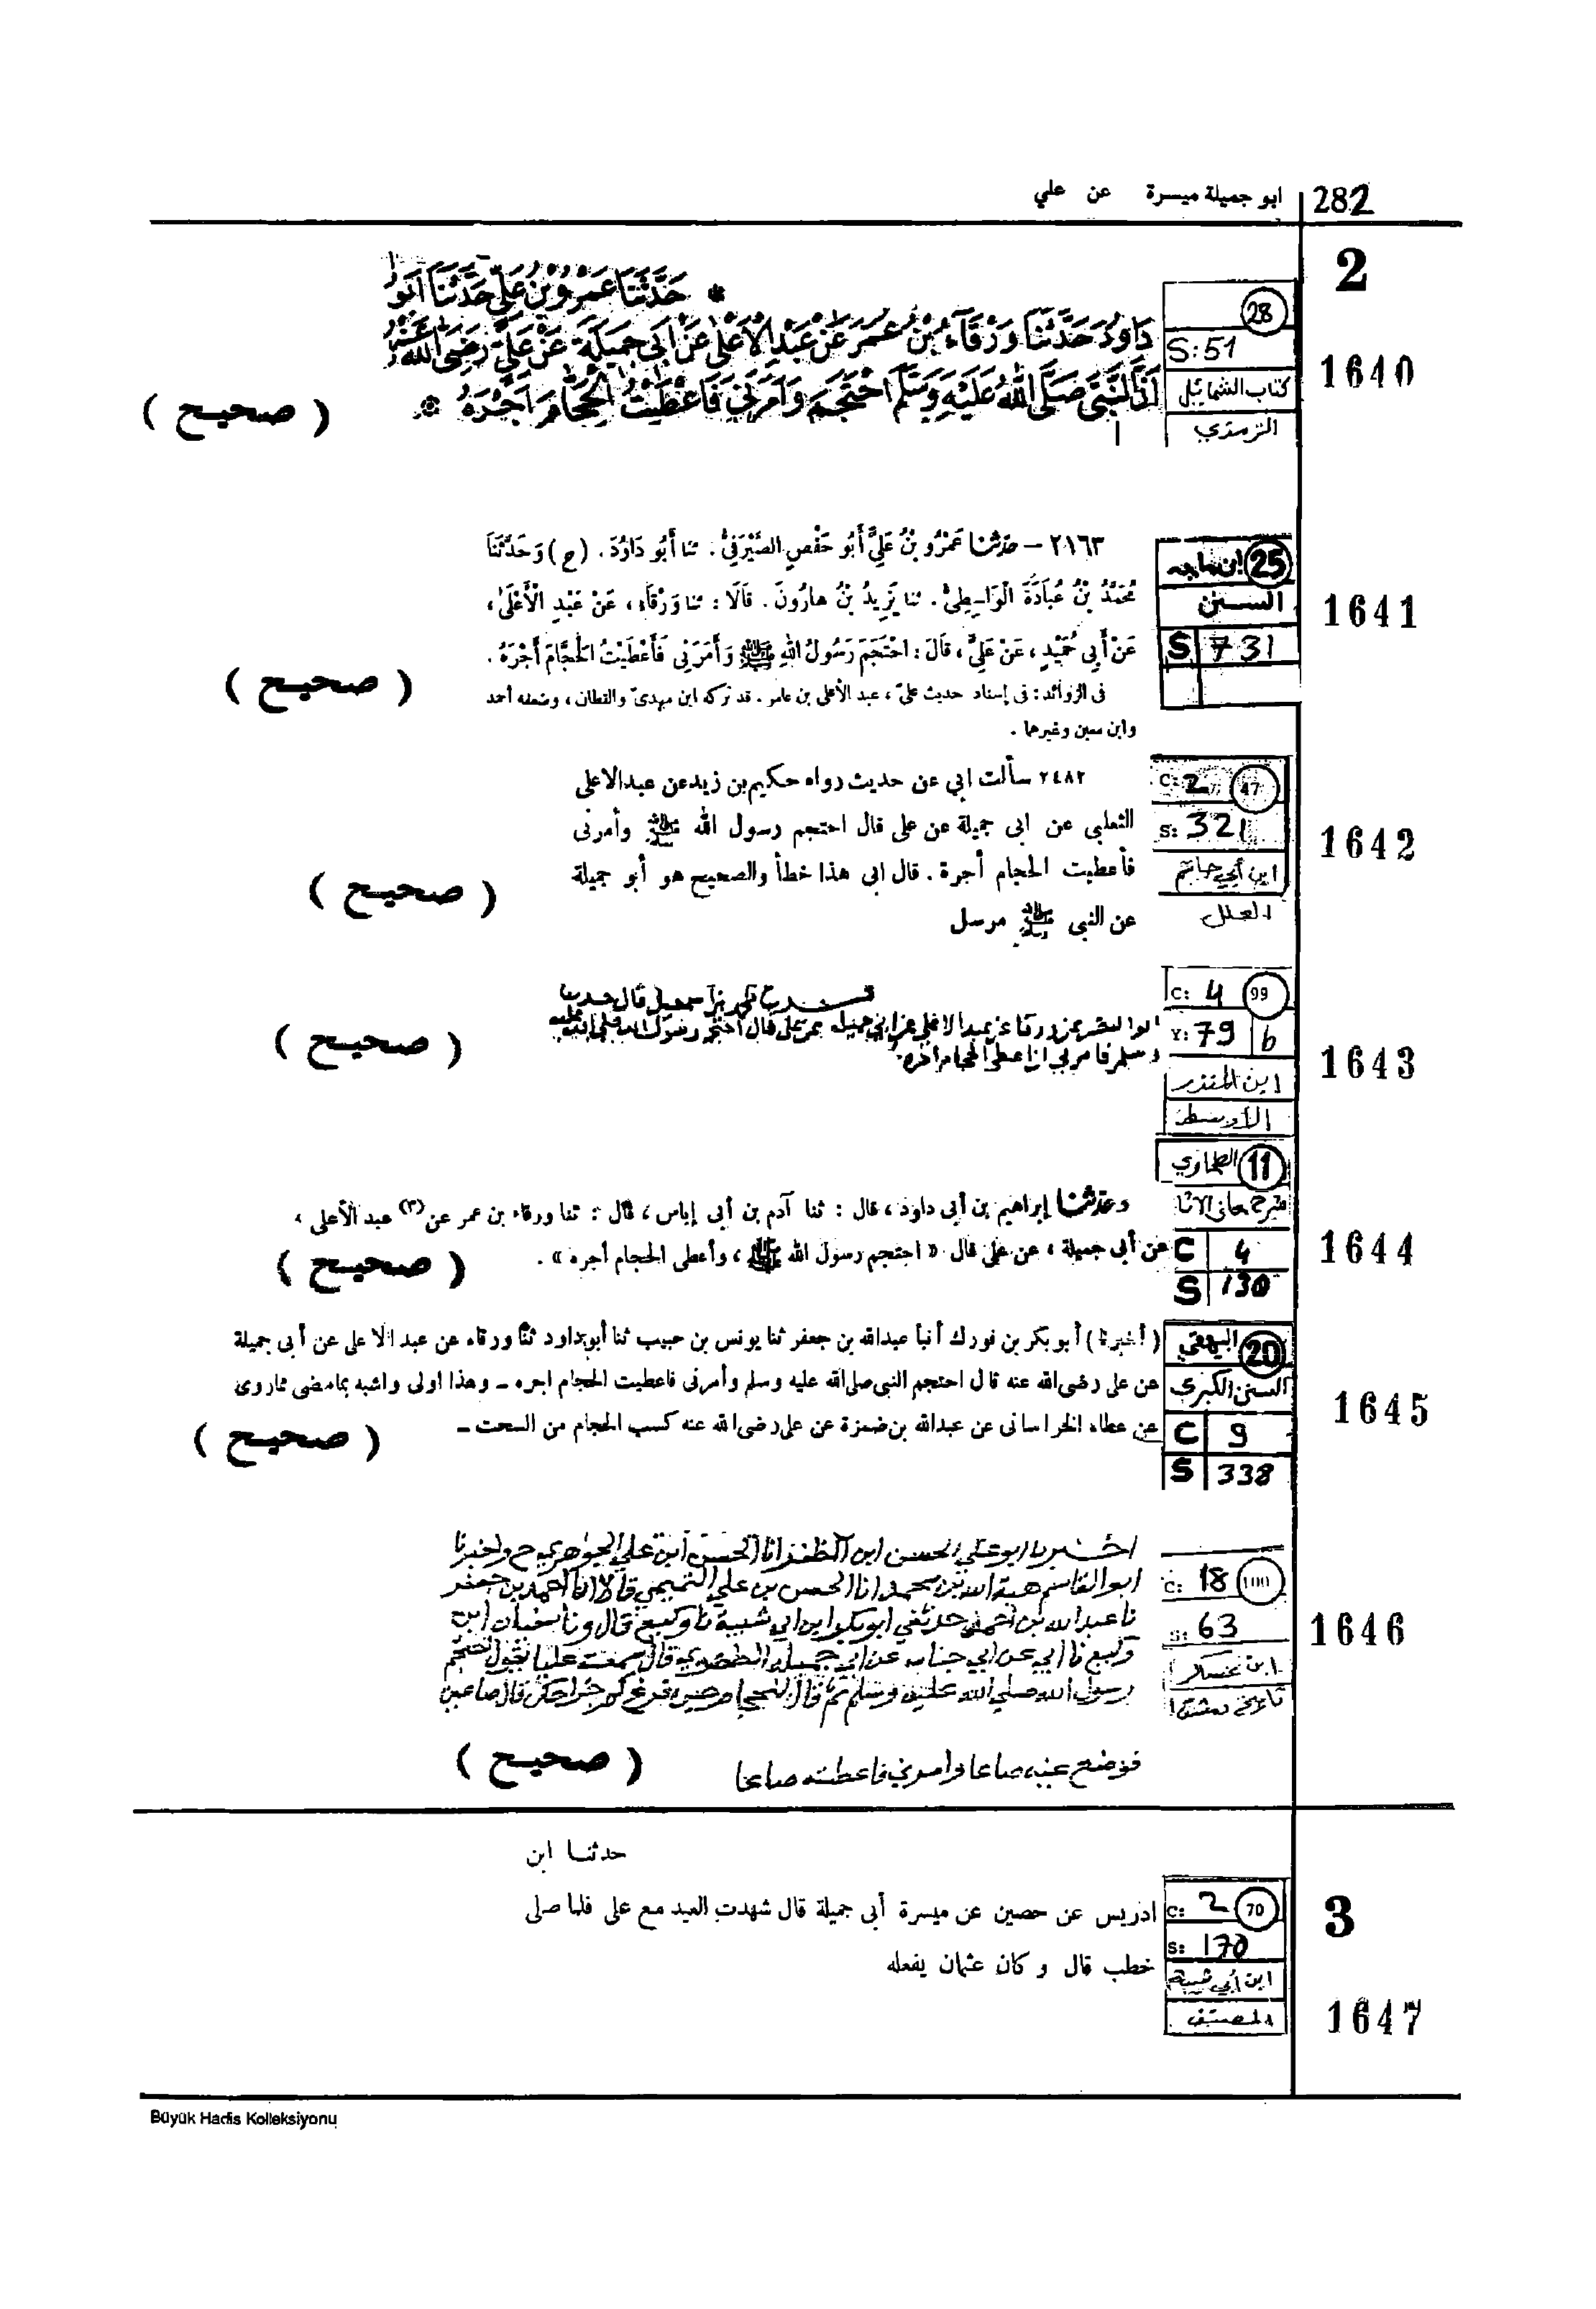 282 ابو جميلة ميسرة عن علي
2
* حَدَّثَنَا عَمْرُو بْنُ عَلِيٍّ حَدَّثَنَا اَبُو
دَاوُدَ حَدَّثَنَا وَرْقَاءُ بْنُ عُمَرَ عَنْ عَبْدِ الْاَعْلٰى عَنْ اَبِي جَمِيلَةَ عَنْ عَلِيٍّ رَضِيَ اللهُ عَنْهُ
اَنَّ النَّبِيَّ صَلَّى اللهُ عَلَيْهِ وَسَلَّمَ احْتَجَمَ وَاَمَرَنِي فَاَعْطَيْتُ الْحَجَّامَ اَجْرَهُ *
( صحيح )
28
S: 51
كتاب الشمايل
الترمذي
1640
٢١٦٣ – حدثنا عَمْرُو بْنُ عَلِيٍّ أَبُو حَفْصٍ الصَّيْرَفِيُّ. ثنا أَبُو دَاوُدَ. (ح) وَحَدَّثَنَا
مُحَمَّدُ بْنُ عُبَادَةَ الْوَاسِطِيُّ. ثنا يَزِيدُ بْنُ هارُونَ. قَالَا: ثنا وَرْقَاءُ، عَنْ عَبْدِ الْأَعْلَىٰ،
عَنْ أَبِي حُمَيْدٍ، عَنْ عَلِيٍّ، قَالَ: احْتَجَمَ رَسُولُ اللهِ ﷺ وَأَمَرَنِي فَأَعْطَيْتُ الْحَجَّامَ أَجْرَهُ.
فى الزوائد: فى إسناد حديث علىّ، عبد الأعلى بن عامر. قد تركه ابن مهدىّ والقطان، وضعفه أحمد
وابن معين وغيرهما.
( صحيح )
25 ابن ماجه
السنن
S 731
1641
٢٤٨٢ سألت ابي عن حديث رواه حكيم بن زيد عن عبدالاعلى
الثعلبى عن ابى جميلة عن على قال احتجم رسول الله ﷺ وأمرنى
فأعطيت الحجام أجرة. قال ابى هذا خطأ والصحيح هو أبو جميلة
عن النبى ﷺ مرسل
( صحيح )
C: 2 47
S: 321
ابن أبي حاتم
العلل
1642
حدثنا محمد بن اسمعيل قال حدثنا
ابو النضر عن ورقا عن عبد الاعلى عن ابي جميله عن على قال احتجم رسول الله صلى الله عليه
وسلم فامرني ان اعطى الحجام اجره
( صحيح )
C: 4 99
Y: 79 b
ابن المنذر
الأوسط
1643
وحدثنا إبراهيم بن أبى داود، قال: ثنا آدم بن أبى إياس، قال: ثنا ورقاء بن عمر عن(٣) عبد الأعلى،
عن أبى جميلة، عن على قال «احتجم رسول الله ﷺ، وأعطى الحجام أجره».
( صحيح )
11 الطحاوي
شرح معاني الاثا
C 4
S 130
1644
( أخبرنا ) أبو بكر بن فورك أنبأ عبدالله بن جعفر ثنا يونس بن حبيب ثنا أبو داود ثنا ورقاء عن عبد الاعلى عن أبى جميلة
عن على رضى الله عنه قال احتجم النبى صلى الله عليه وسلم وأمرنى فاعطيت الحجام اجره – وهذا اولى واشبه بمامضى مماروى
عن عطاء الخراسانى عن عبدالله بن ضمرة عن على رضى الله عنه كسب الحجام من السحت –
( صحيح )
20 البيهقي
السنن الكبرى
C 9
S 338
1645
اخبرنا ابو علي الحسن ابن المظفر انا الحسن ابن علي الجوهري ح واخبرنا
ابو القاسم هبة الله بن محمد انا الحسن بن علي التميمي قالا انا احمد بن جعفر
نا عبد الله بن احمد حدثني ابو بكر ابن ابي شيبة نا وكيع قال ونا سفيان ابن
وكيع نا ابي عن ابي جناب عن ابي جميلة الطهوي قال سمعت عليا يقول احتجم
رسول الله صلي الله عليه وسلم ثم قال للحجام حين فرغ كم خراجك قال صاعين
فوضع عنه صاعا وامرني فاعطيته صاعا
( صحيح )
C: 18 100
S: 63
ابن عساكر
تاريخ دمشق
1646
حدثنا ابن
ادريس عن حصين عن ميسرة أبى جميلة قال شهدت العيد مع على فلما صلى
خطب قال و كان عثمان يفعله
C: 2 70
S: 170
ابن أبي شيبة
المصنف
3
1647
Büyük Hadis Kolleksiyonu